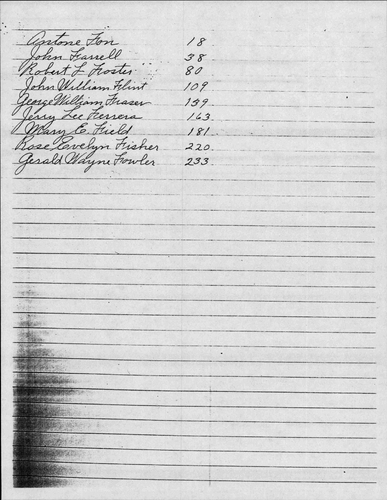 Antone Fon 18
John Farrell 38
Robert L Foster 80
John William Flint 109
George William Fraser 139
Jerry Lee Ferrera 163
Mary E. Field 181
Rose Evelyn Fisher 220
Gerald Wayne Fowler 233